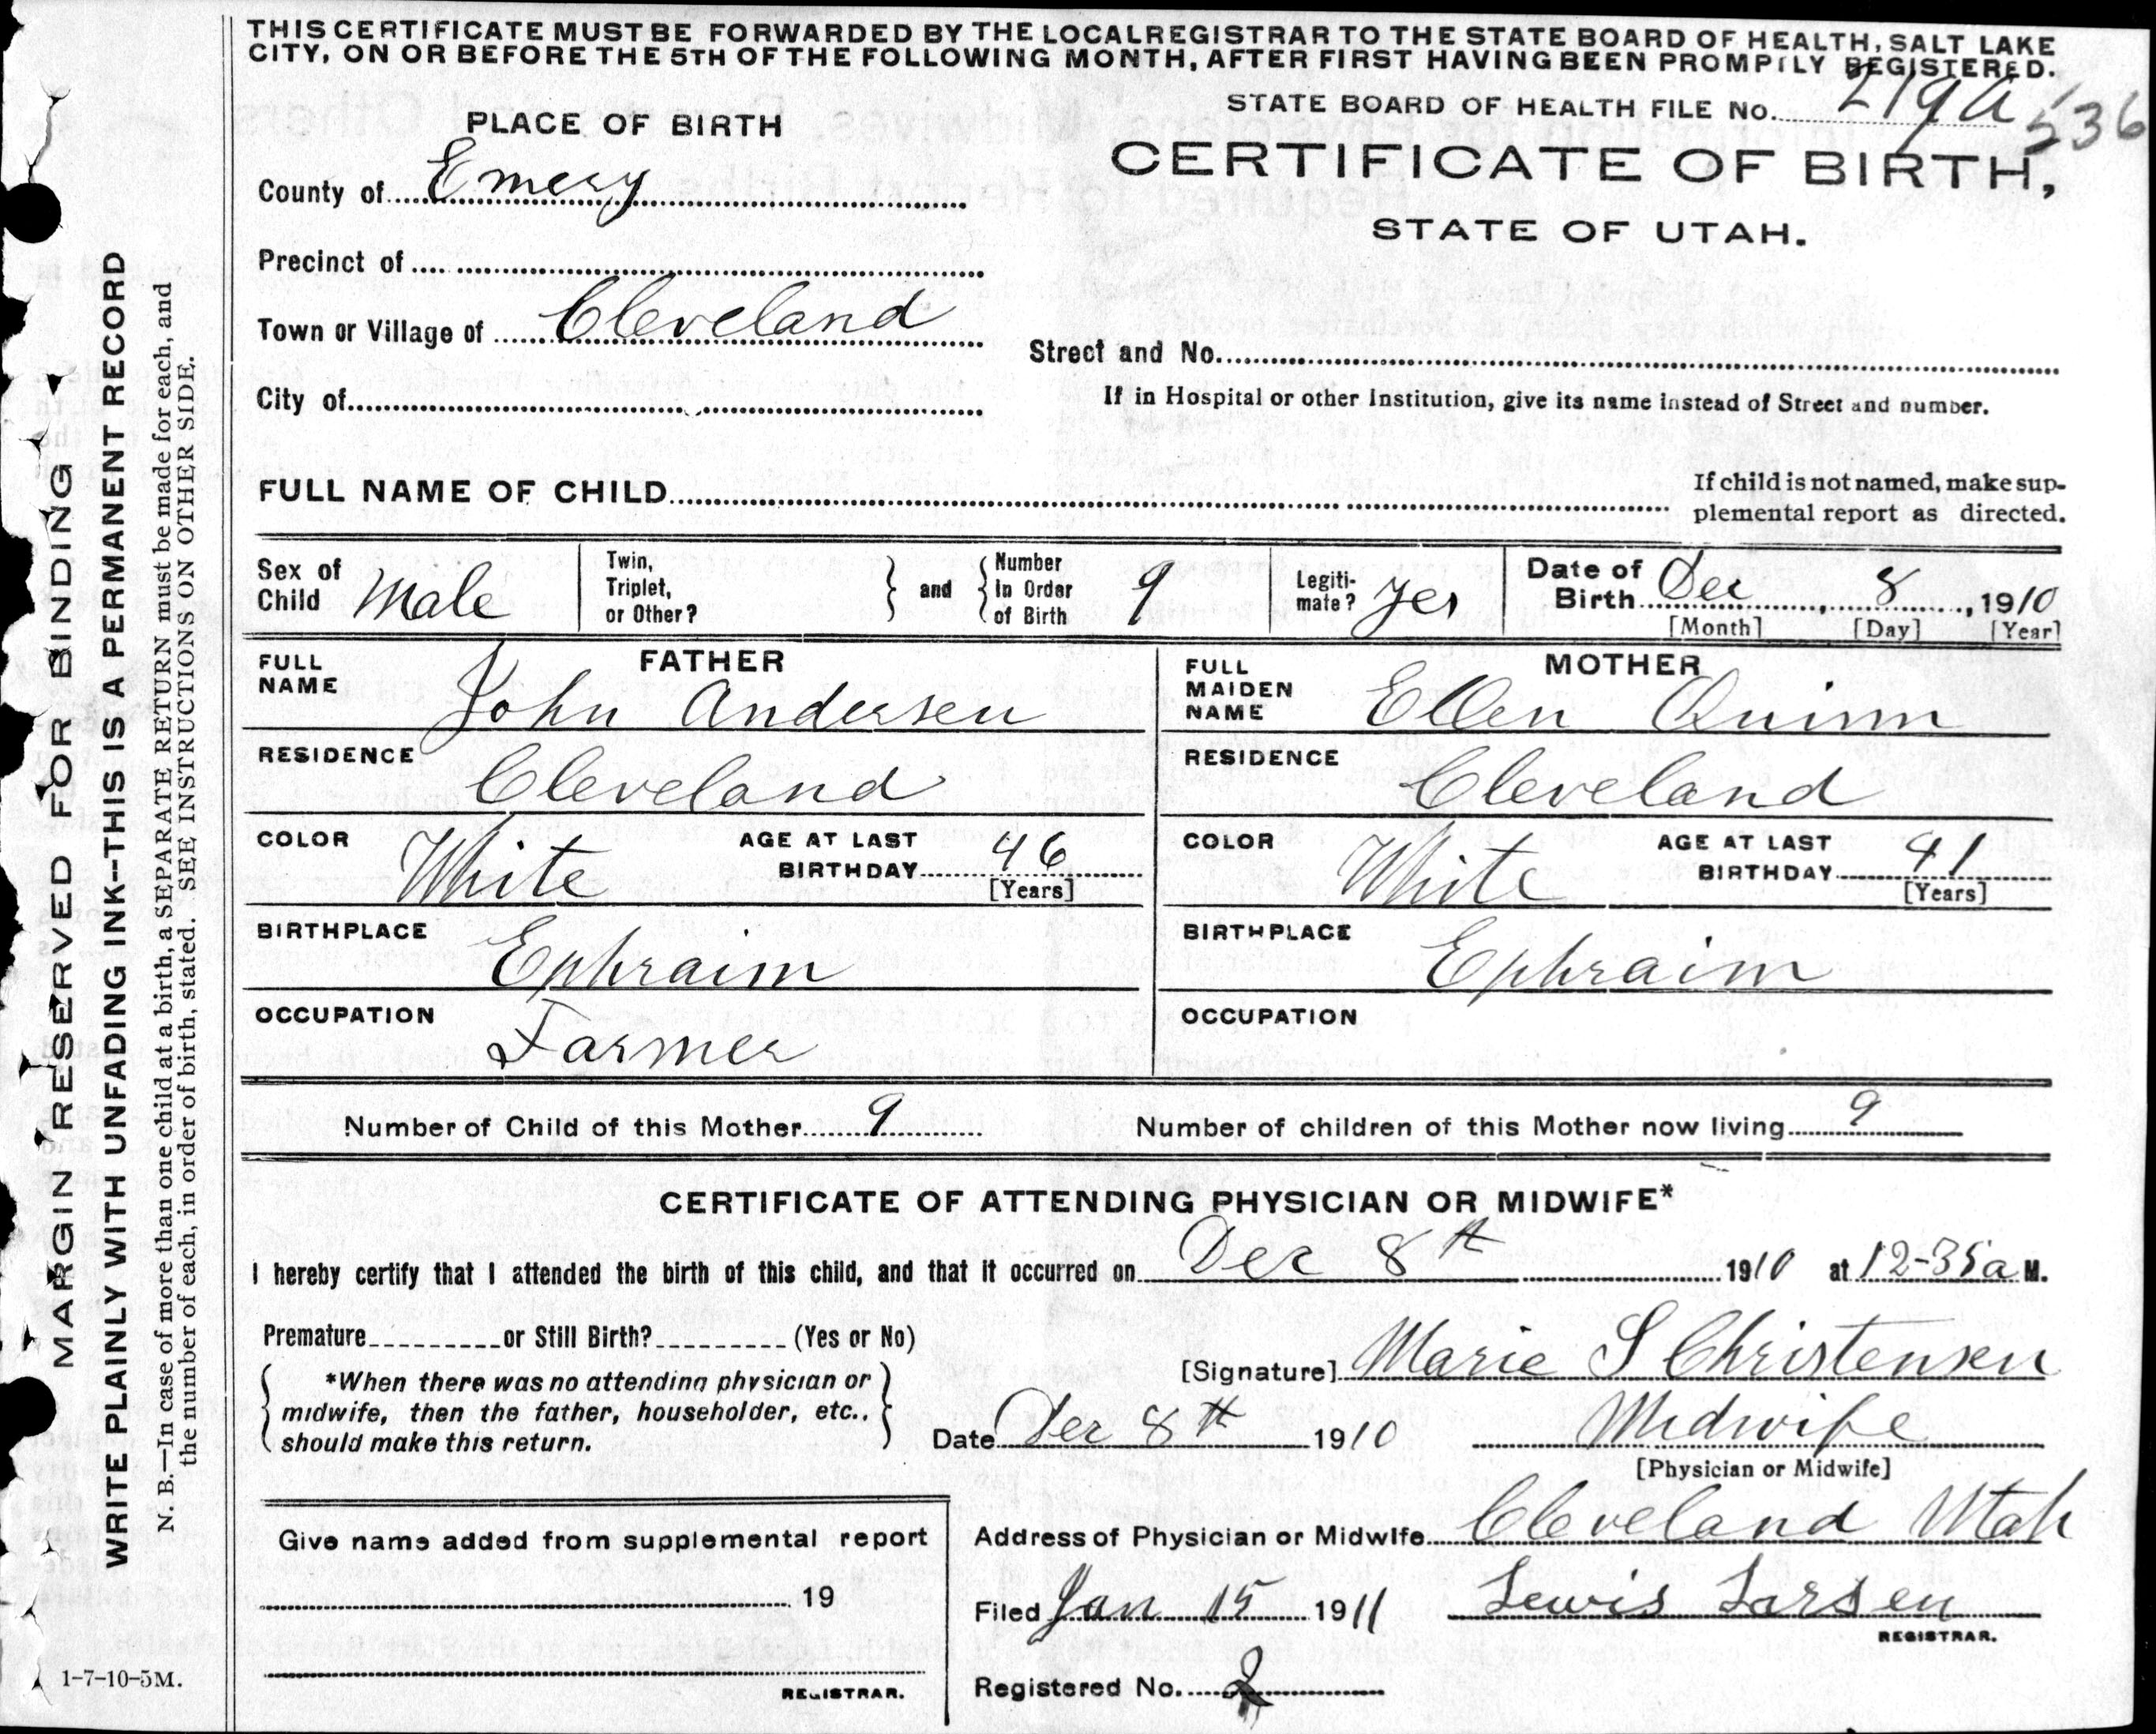 THIS CERTIFICATE MUST BE FORWARDED BY THE LOCAL REGISTRAR TO THE STATE BOARD OF HEALTH, SALT LAKE
CITY, ON OR BEFORE THE 5TH OF THE FOLLOWING MONTH, AFTER FIRST HAVING BEEN PROMPTLY REGISTERED.
STATE BOARD OF HEALTH FILE No. 219a 536
PLACE OF BIRTH
CERTIFICATE OF BIRTH,
STATE OF UTAH.
County of Emery
Precinct of
Town or Village of Cleveland
Street and No.
City of
If in Hospital or other Institution, give its name instead of Street and number.
FULL NAME OF CHILD
If child is not named, make sup-
plemental report as directed.
Sex of Child Male
Twin, Triplet, or Other? } and { Number In Order of Birth 9
Legiti-mate? Yes
Date of Birth Dec, 8, 1910
[Month] [Day] [Year]
FATHER
FULL NAME John Andersen
RESIDENCE Cleveland
COLOR White AGE AT LAST BIRTHDAY 46 [Years]
BIRTHPLACE Ephraim
OCCUPATION Farmer
MOTHER
FULL MAIDEN NAME Ellen Quinn
RESIDENCE Cleveland
COLOR White AGE AT LAST BIRTHDAY 41 [Years]
BIRTHPLACE Ephraim
OCCUPATION
Number of Child of this Mother 9 Number of children of this Mother now living 9
CERTIFICATE OF ATTENDING PHYSICIAN OR MIDWIFE*
I hereby certify that I attended the birth of this child, and that it occurred on Dec 8th 1910 at 12-35 a M.
Premature or Still Birth? (Yes or No)
[Signature] Marie S Christensen
*When there was no attending physician or
midwife, then the father, householder, etc.,
should make this return.
Date Dec 8th 1910 Midwife
[Physician or Midwife]
Give name added from supplemental report
19
REGISTRAR.
Address of Physician or Midwife Cleveland Utah
Filed Jan 15 1911 Lewis Larsen
REGISTRAR.
Registered No. 2
MARGIN RESERVED FOR BINDING
WRITE PLAINLY WITH UNFADING INK--THIS IS A PERMANENT RECORD
N. B.—In case of more than one child at a birth, a SEPARATE RETURN must be made for each, and
the number of each, in order of birth, stated. SEE INSTRUCTIONS ON OTHER SIDE.
1-7-10-5M.